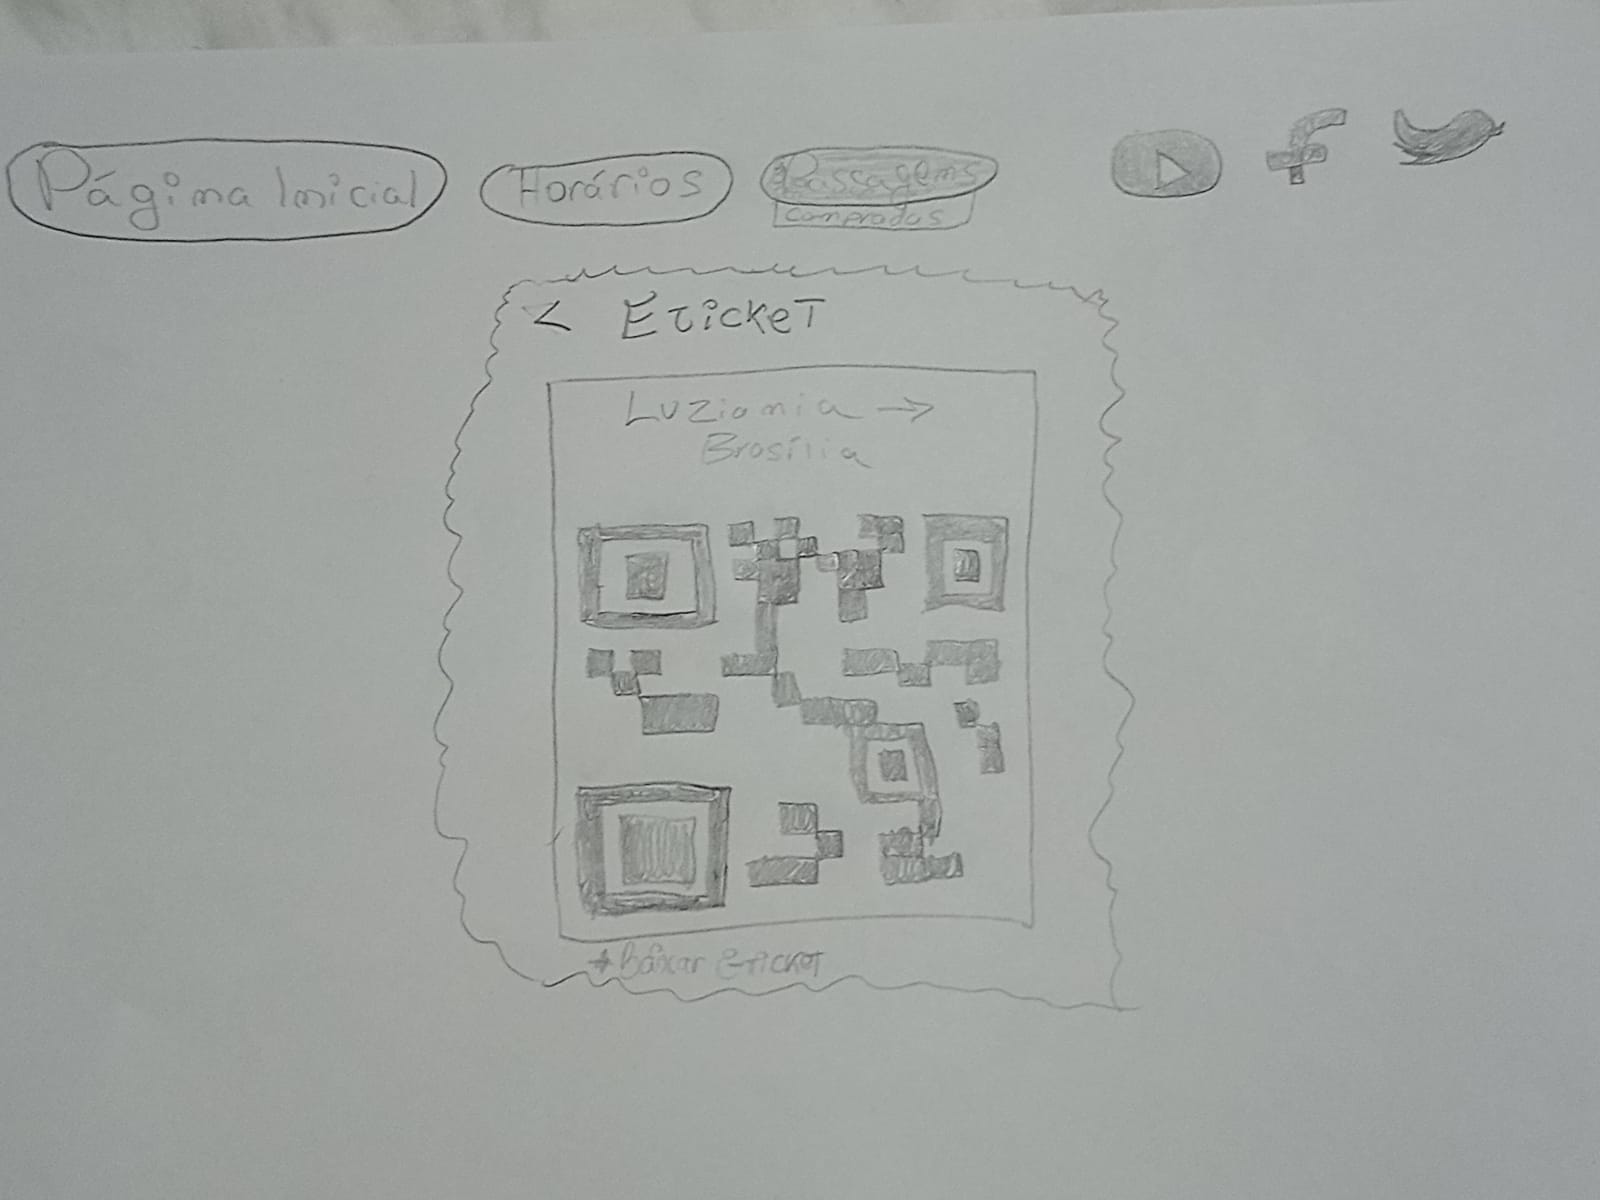 Página Inicial
Horários
Passagens
compradas
< EtickeT
Luziania →
Brasília
Baixar e-ticket